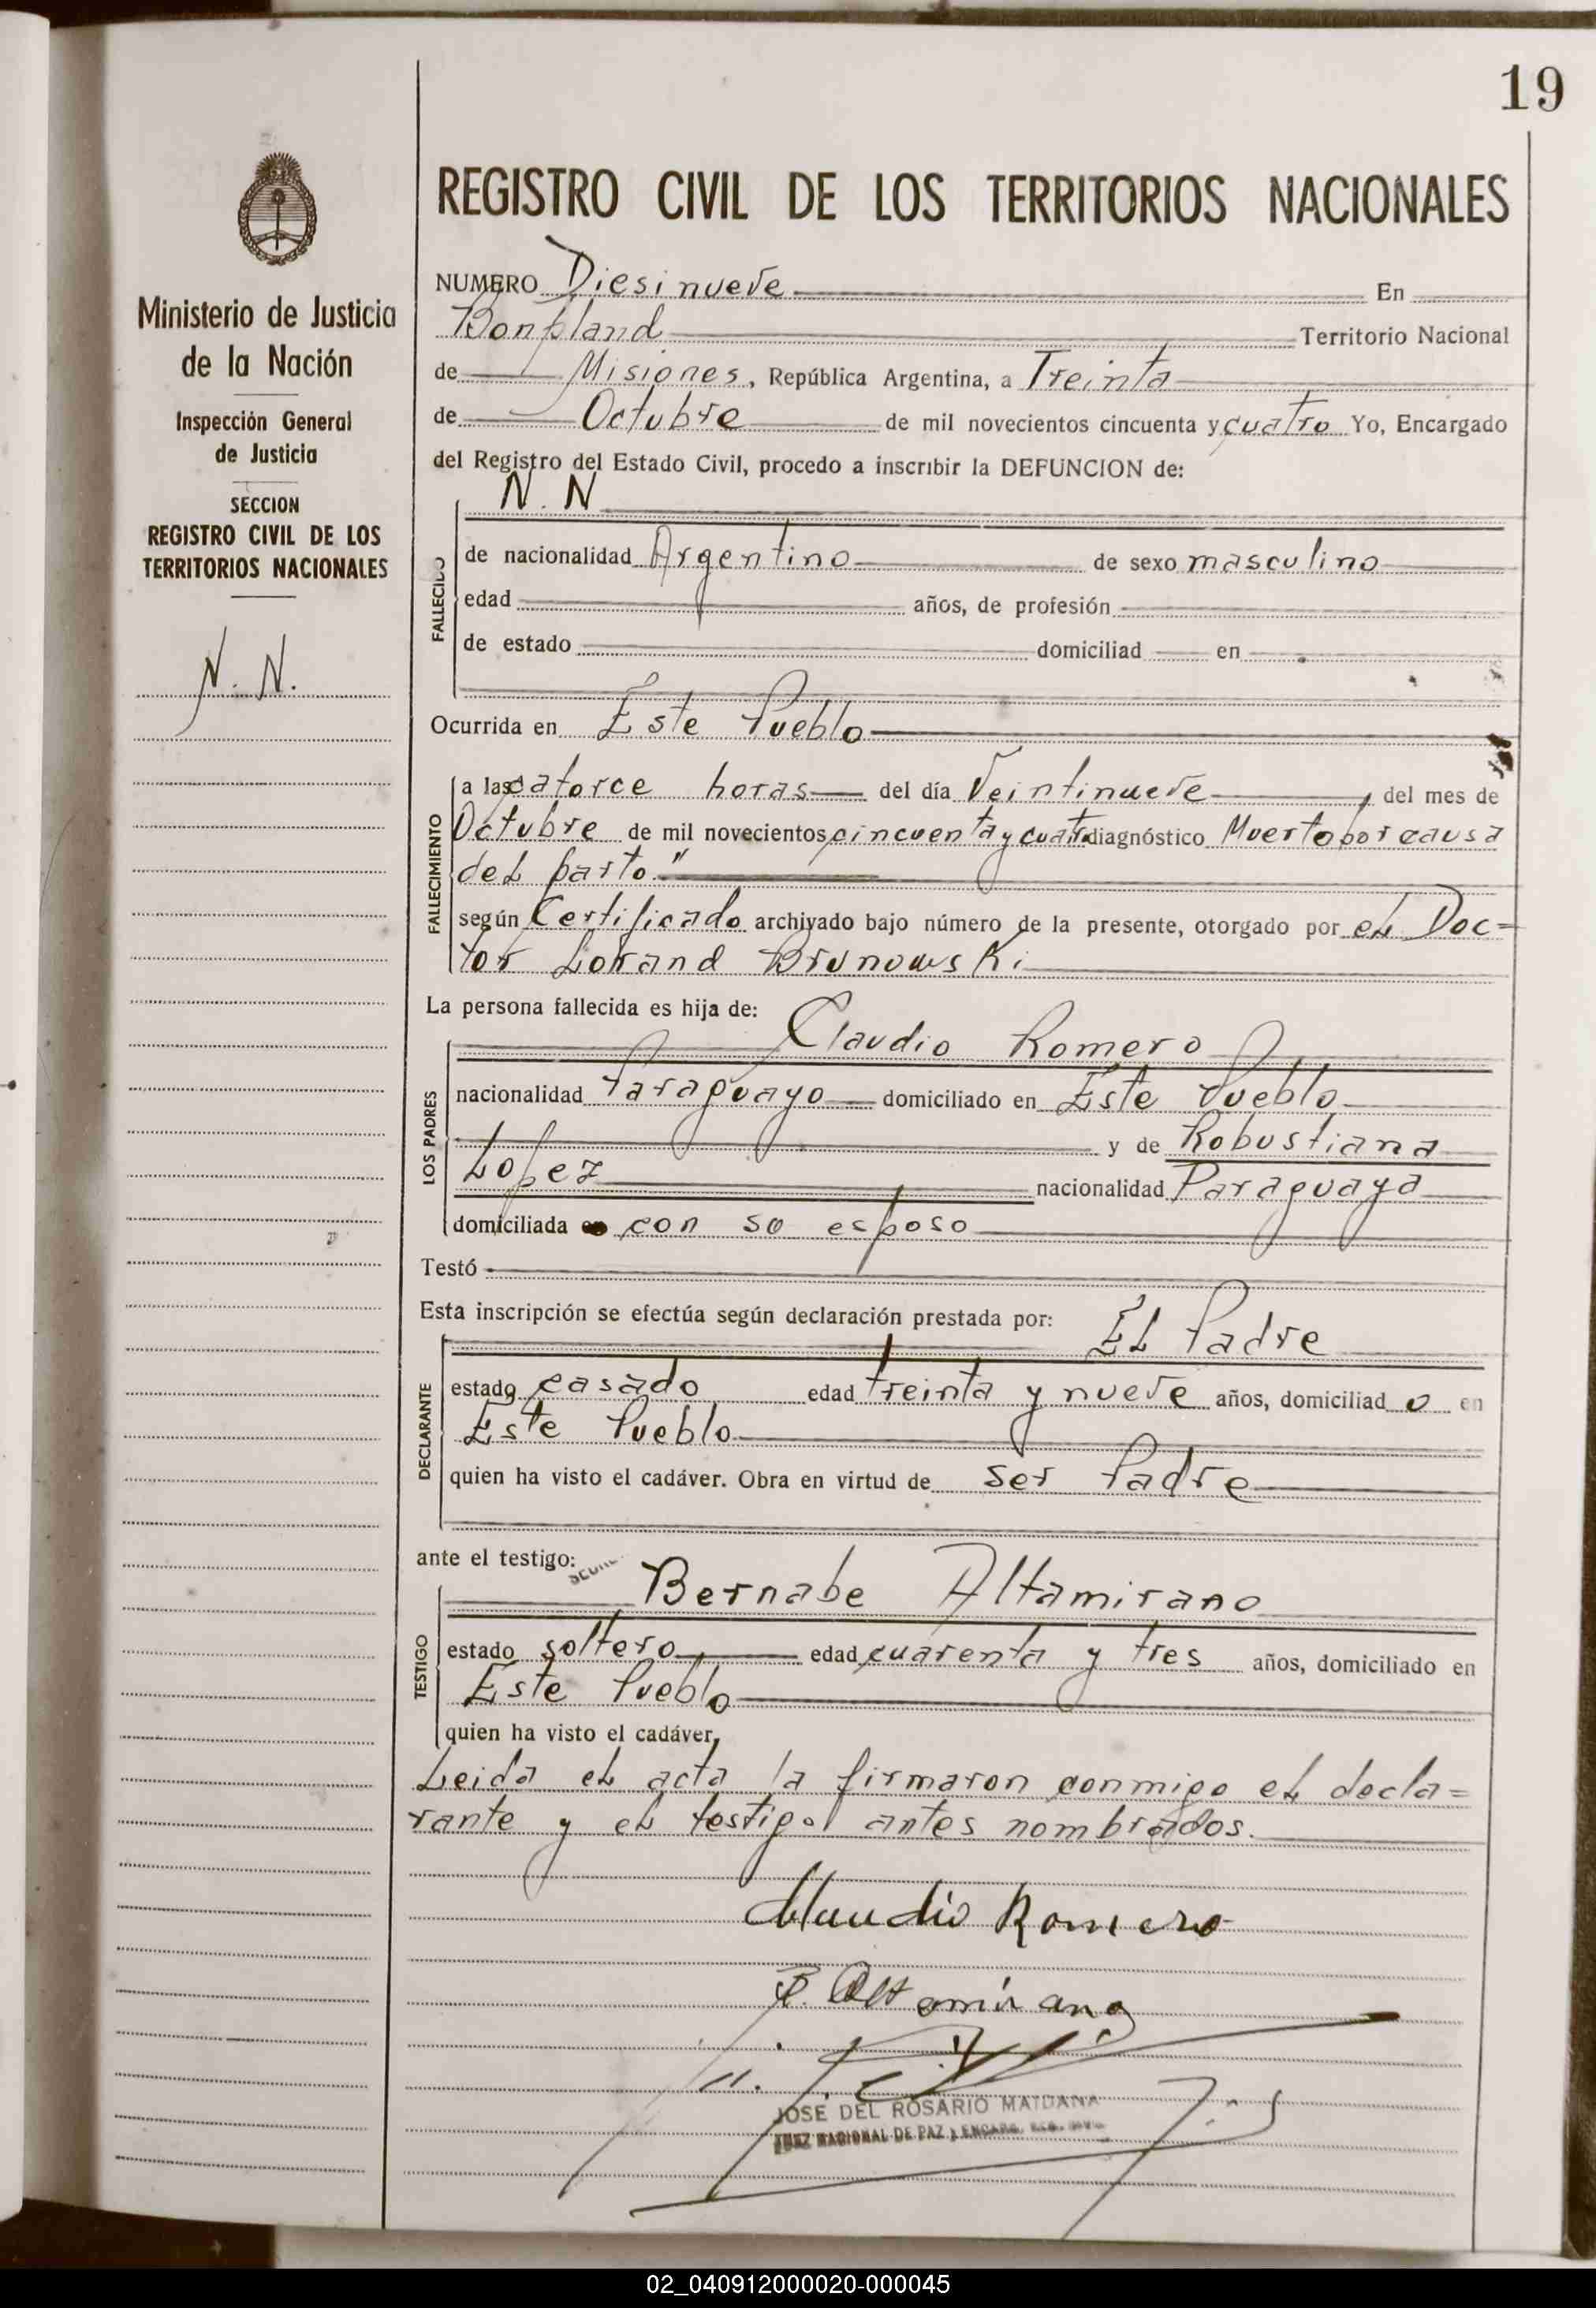 19
REGISTRO CIVIL DE LOS TERRITORIOS NACIONALES
Ministerio de Justicia
de la Nación
Inspección General
de Justicia
SECCION
REGISTRO CIVIL DE LOS
TERRITORIOS NACIONALES
N. N.
NUMERO Diesinueve En
Bonpland Territorio Nacional
de Misiones, República Argentina, a Treinta
de Octubre de mil novecientos cincuenta y cuatro Yo, Encargado
del Registro del Estado Civil, procedo a inscribir la DEFUNCION de:
N. N
FALLECIDO
de nacionalidad Argentino de sexo masculino
edad años, de profesión
de estado domiciliad en
Ocurrida en Este Pueblo
FALLECIMIENTO
a las catorce horas del día Veintinueve del mes de
Octubre de mil novecientos cincuenta y cuatro diagnóstico Muerto por causa
del parto"
según Certificado archivado bajo número de la presente, otorgado por el Doc=
tor Lorand Brunowski
La persona fallecida es hija de:
Claudio Romero
LOS PADRES
nacionalidad Paraguayo domiciliado en Este Pueblo
y de Robustiana
Lopez nacionalidad Paraguaya
domiciliada con su esposo
Testó
Esta inscripción se efectúa según declaración prestada por:
El Padre
DECLARANTE
estado casado edad treinta y nueve años, domiciliad o en
Este Pueblo
quien ha visto el cadáver. Obra en virtud de ser Padre
ante el testigo:
Bernabe Altamirano
TESTIGO
estado soltero edad cuarenta y tres años, domiciliado en
Este Pueblo
quien ha visto el cadáver,
Leida el acta la firmaron conmigo el decla=
rante y el testigo antes nombrados.
Claudio Romero
B. Altamirano
JOSE DEL ROSARIO MAIDANA
JUEZ NACIONAL DE PAZ y ENCARG. REG. CIVIL
02_040912000020-000045